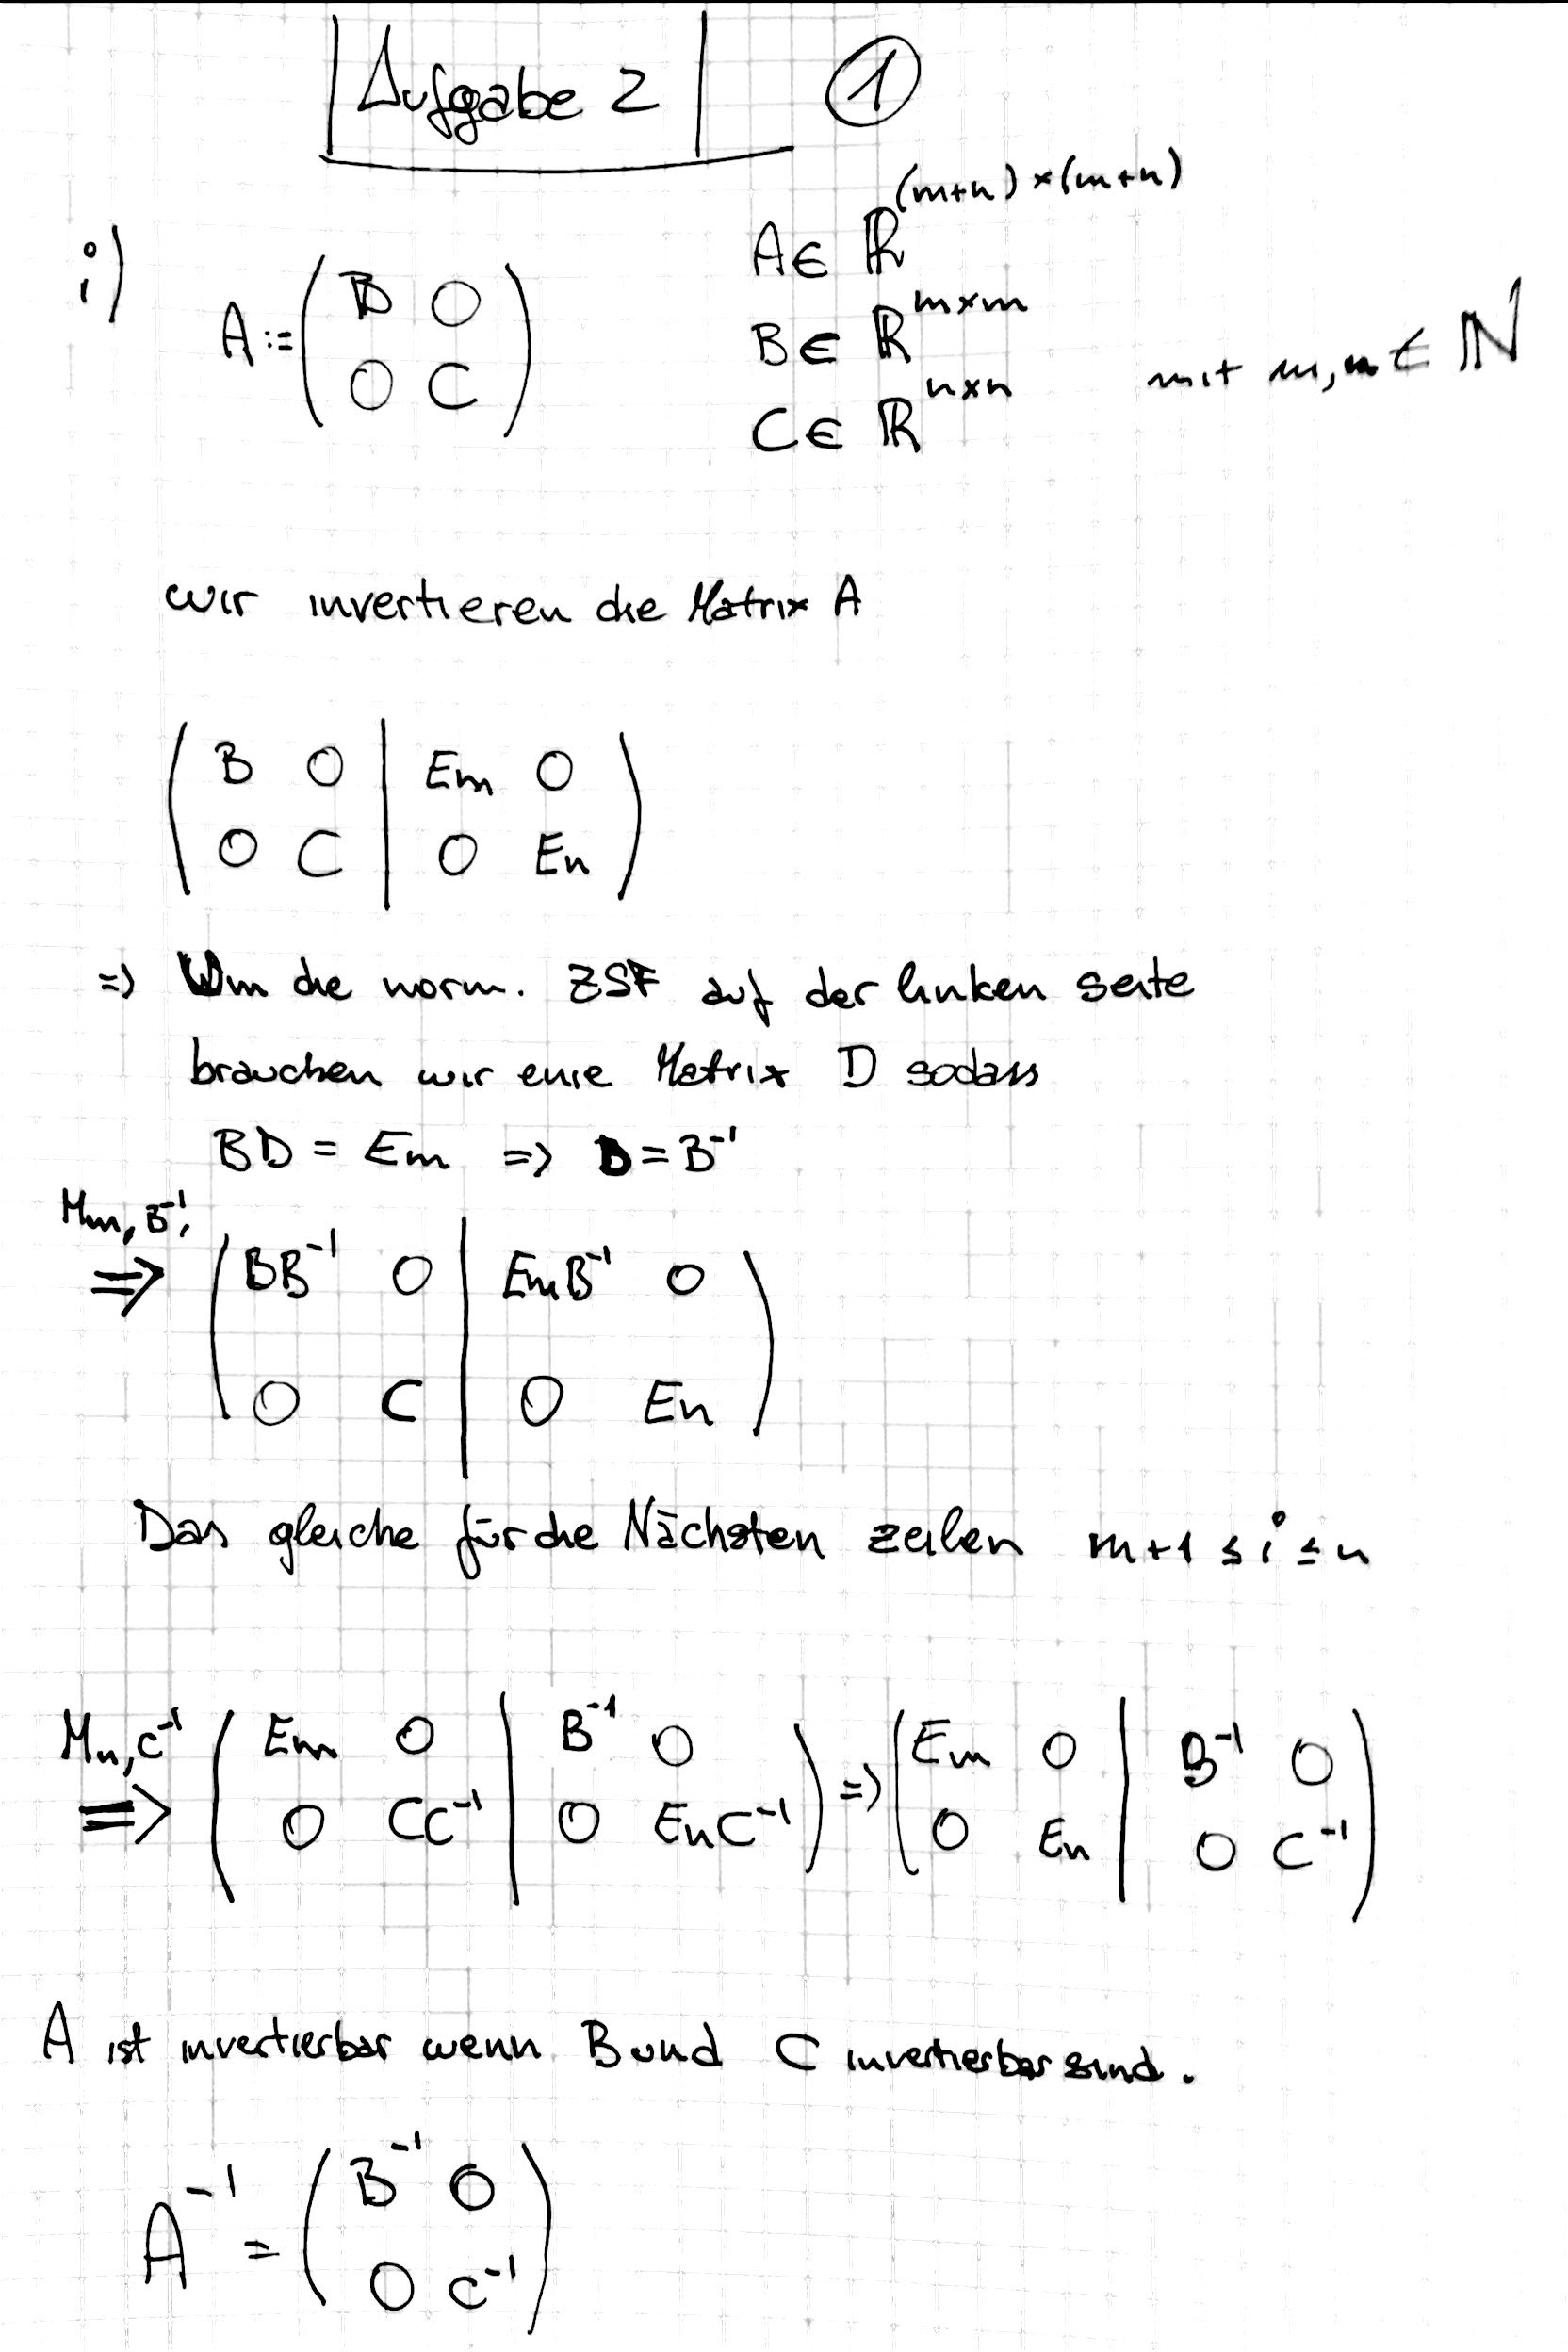 Aufgabe 2 ①
i) A := ( B 0 ; 0 C ) A ∈ ℝ^(m+n)×(m+n)
B ∈ ℝ^m×m
C ∈ ℝ^n×n mit m, n ∈ ℕ
wir invertieren die Matrix A
( B 0 | Em 0
0 C | 0 En )
=> Um die norm. ZSF auf der linken seite
brauchen wir eine Matrix D sodass
BD = Em => D = B^-1
Mm, B^-1,
=> ( BB^-1 0 | EmB^-1 0
0 C | 0 En )
Das gleiche für die Nächsten zeilen m+1 ≤ i ≤ n
Mn, C^-1
=> ( Em 0 | B^-1 0 ; 0 CC^-1 | 0 EnC^-1 ) => ( Em 0 | B^-1 0 ; 0 En | 0 C^-1 )
A ist invertierbar wenn B und C invertierbar sind.
A^-1 = ( B^-1 0
0 C^-1 )